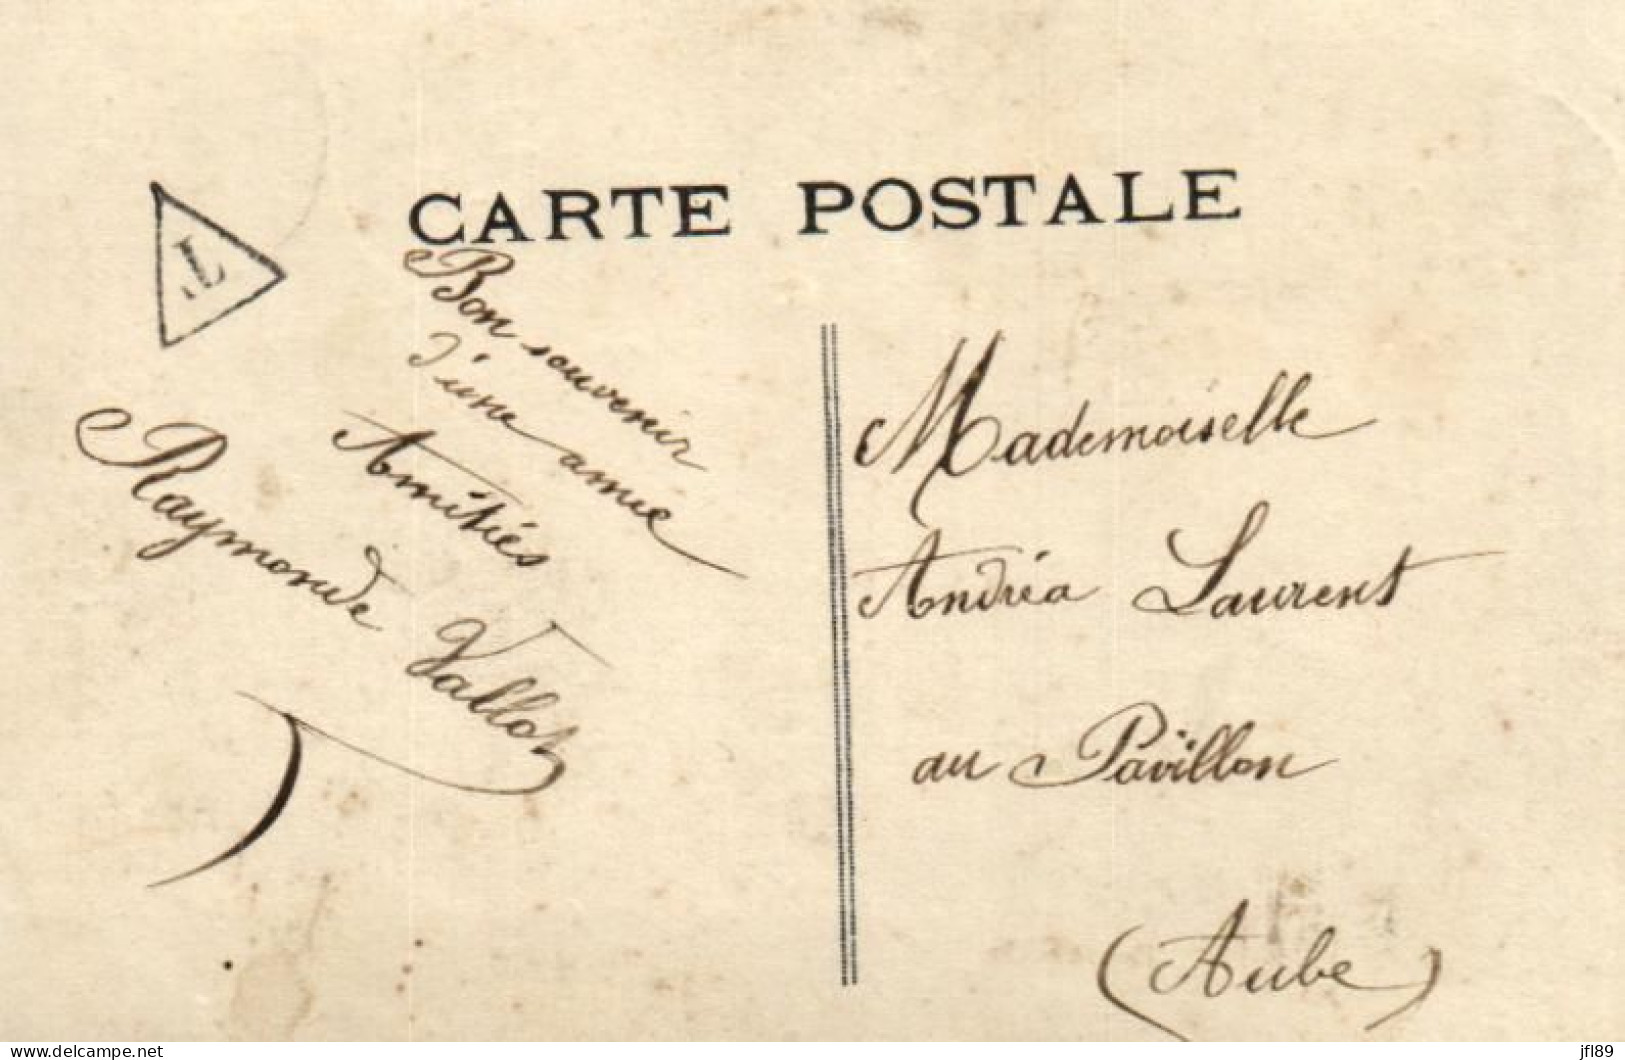 CARTE POSTALE
T
Bon souvenir
d'une amie
Amitiés
Raymonde Vallot
Mademoiselle
Andréa Laurent
au Pavillon
(Aube)
www.delcampe.net
jfl89